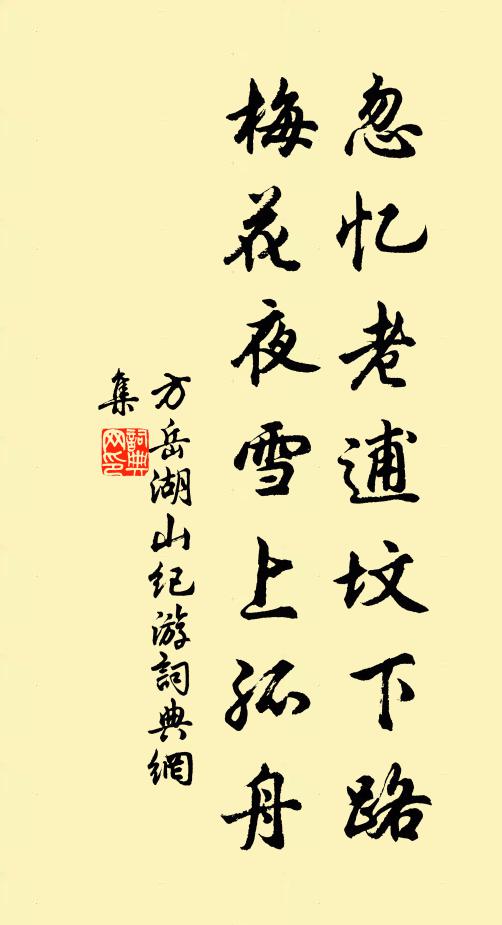 忽忆老逋坟下路
梅花夜雪上孤舟
方岳湖山纪游詞典網
集
詞典
网印